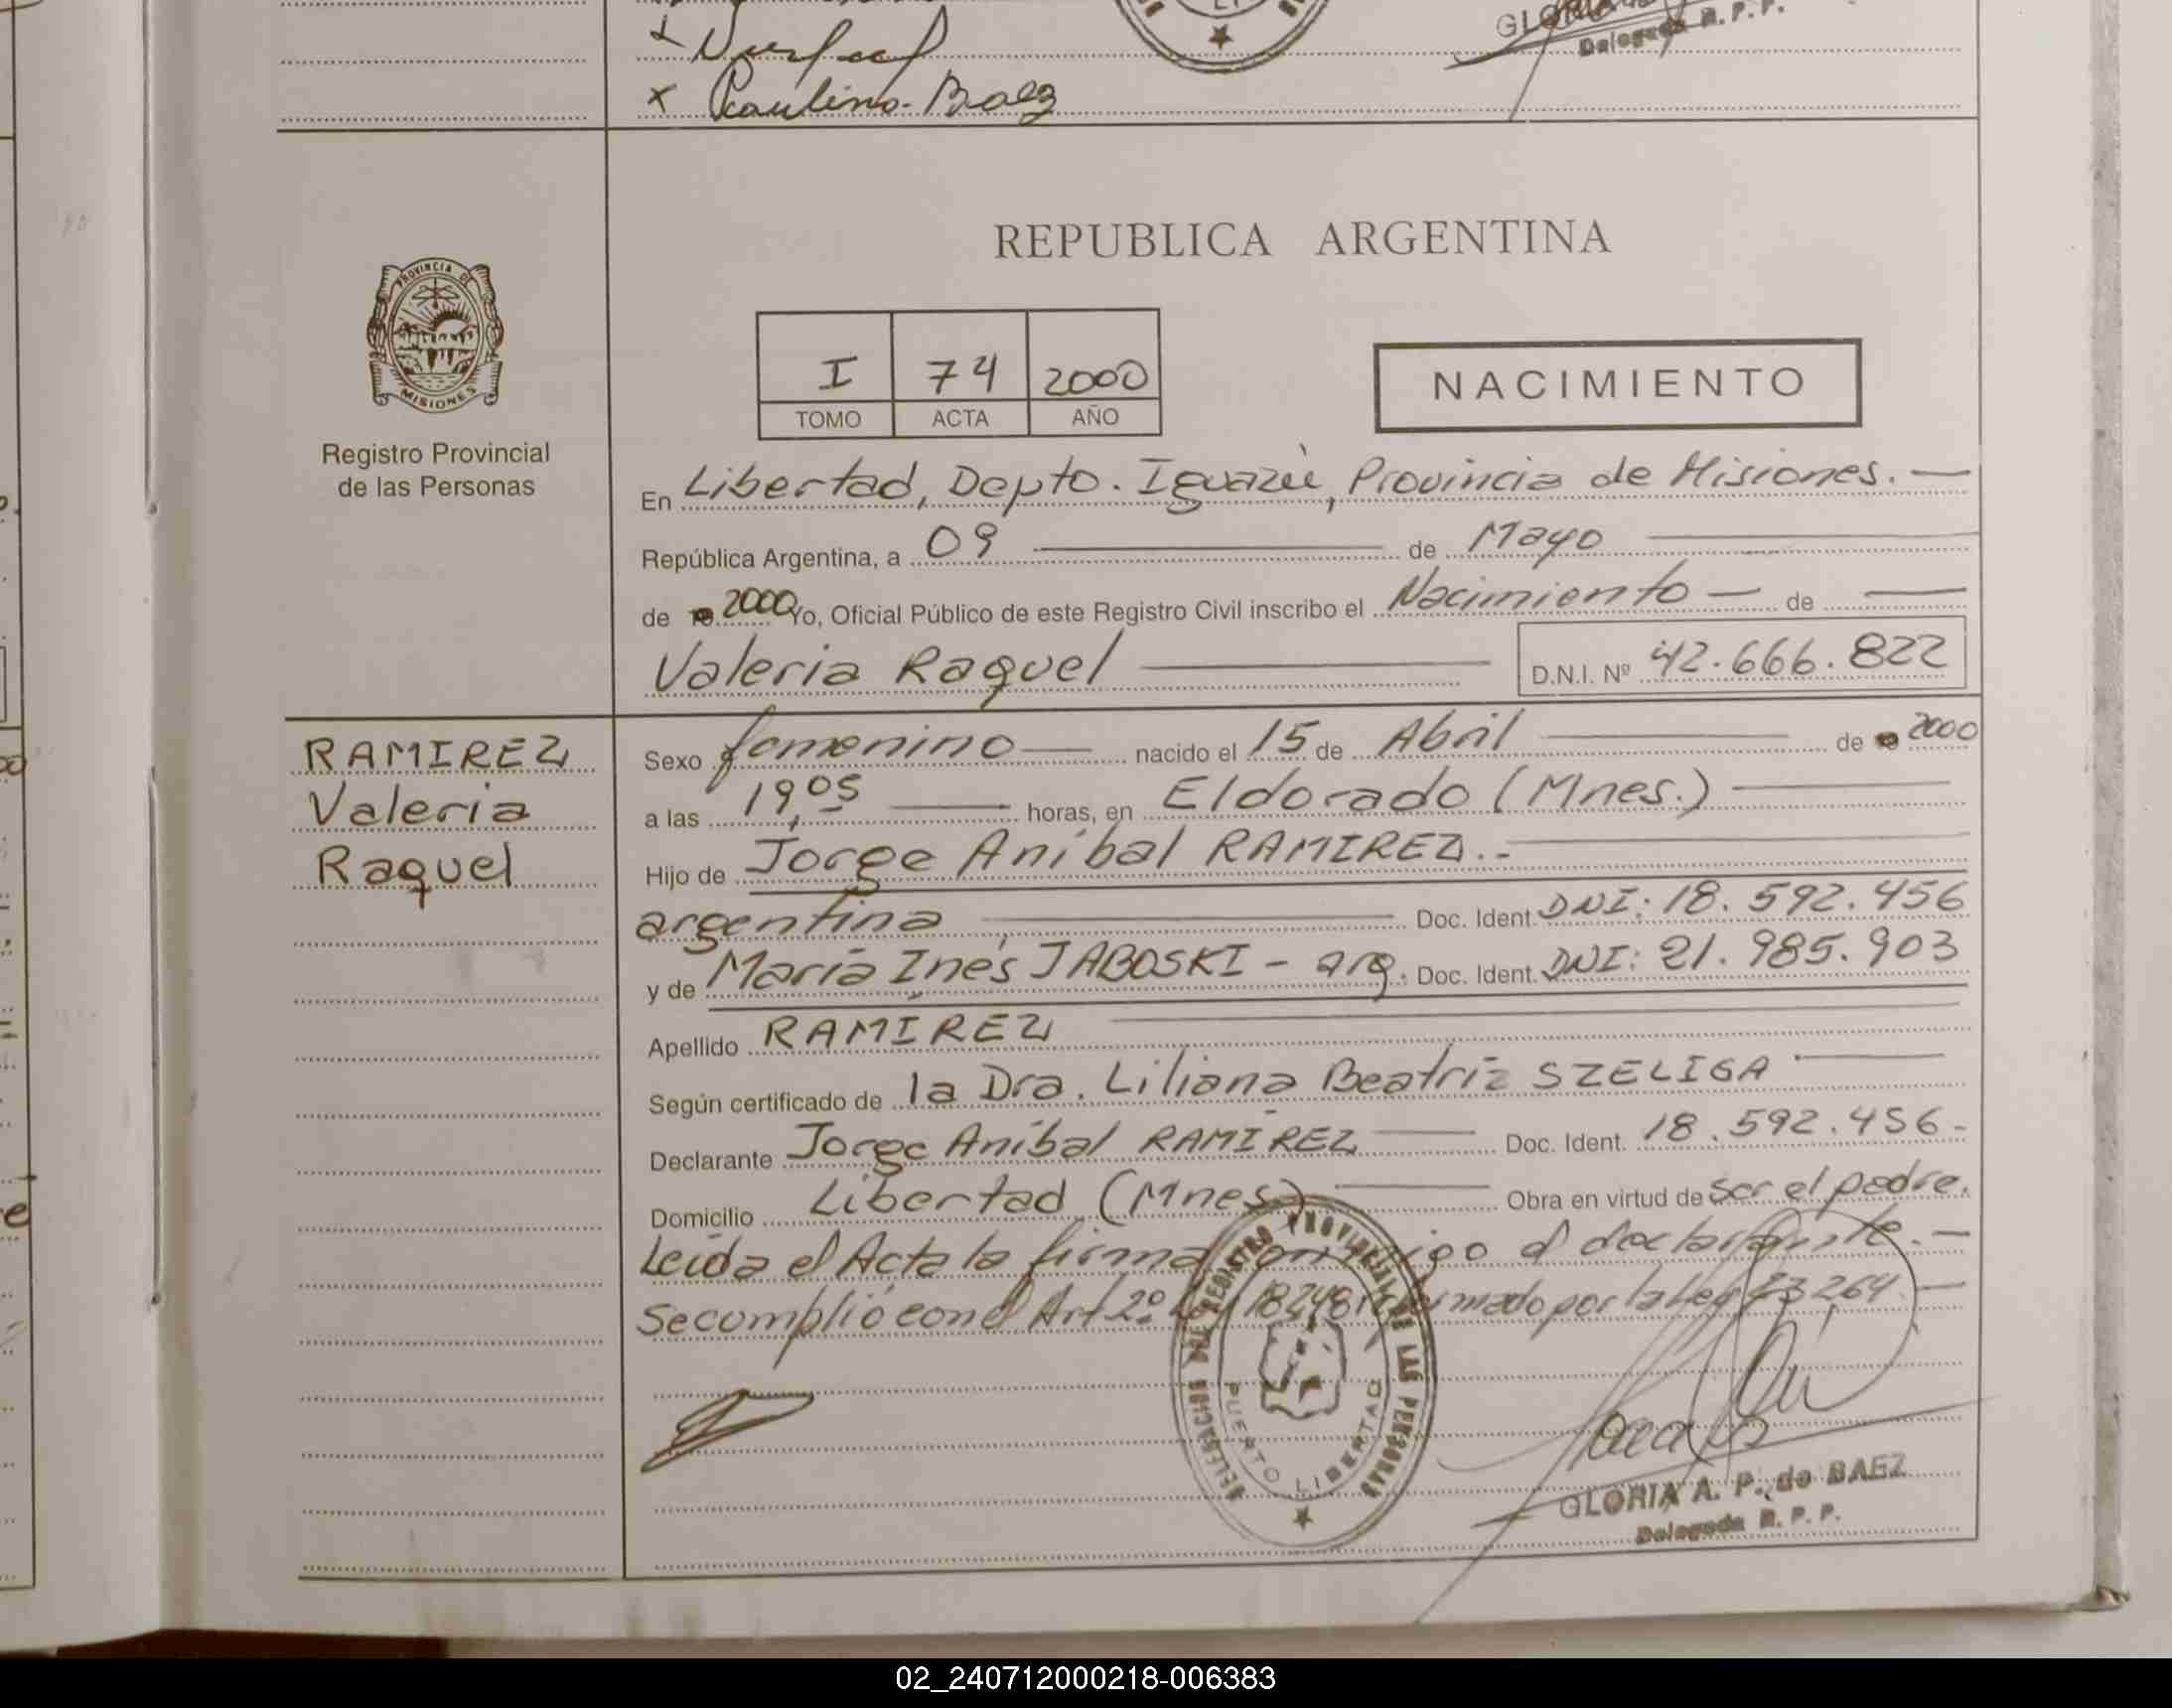 GLORIA
Delegada R. P. P.
x Paulino Baez
REPUBLICA ARGENTINA
PROVINCIA DE
MISIONES
Registro Provincial
de las Personas
I 74 2000
TOMO ACTA AÑO
NACIMIENTO
En Libertad, Depto. Iguazú, Provincia de Misiones.
República Argentina, a 09 de Mayo
de 2000 Yo, Oficial Público de este Registro Civil inscribo el Nacimiento de
Valeria Raquel D.N.I. Nº 42.666.822
RAMIREZ
Valeria
Raquel
Sexo femenino nacido el 15 de Abril de 2000
a las 19,05 horas, en Eldorado (Mnes.)
Hijo de Jorge Aníbal RAMIREZ.-
argentina Doc. Ident. DNI: 18.592.456
y de María Inés JABOSKI - arg. Doc. Ident. DNI: 21.985.903
Apellido RAMIREZ
Según certificado de la Dra. Liliana Beatriz SZELIGA
Declarante Jorge Aníbal RAMIREZ Doc. Ident. 18.592.456-
Domicilio Libertad (Mnes) Obra en virtud de ser el padre.
Leída el Acta la firma conmigo el declarante.-
Se cumplió con el Art 2º Ley 18248 reformado por la Ley 23264.-
DELEGACION DEL REGISTRO PROVINCIAL DE LAS PERSONAS
PUERTO LIBERTAD
GLORIA A. P. de BAEZ
Delegada R. P. P.
02_240712000218-006383